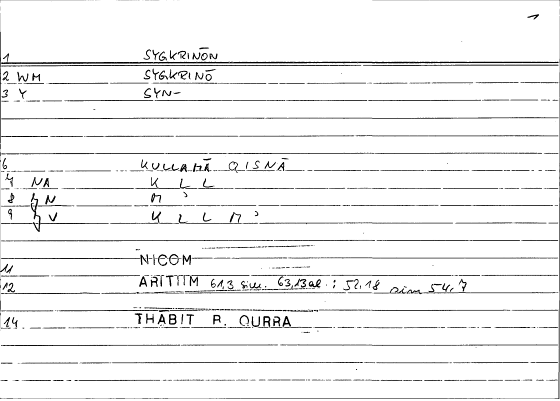 1 SYGKRINŌN
2 WM SYGKRINŌ
3 Y SYN-
6 KULLAMĀ QISNĀ
7 NA K L L
8 N M ʾ
9 V K L L M ʾ
11 NICOM
12 ARITIIM 61,3 sim. 63,13 al. : 52,18 sim 54,7
14 THĀBIT R. QURRA